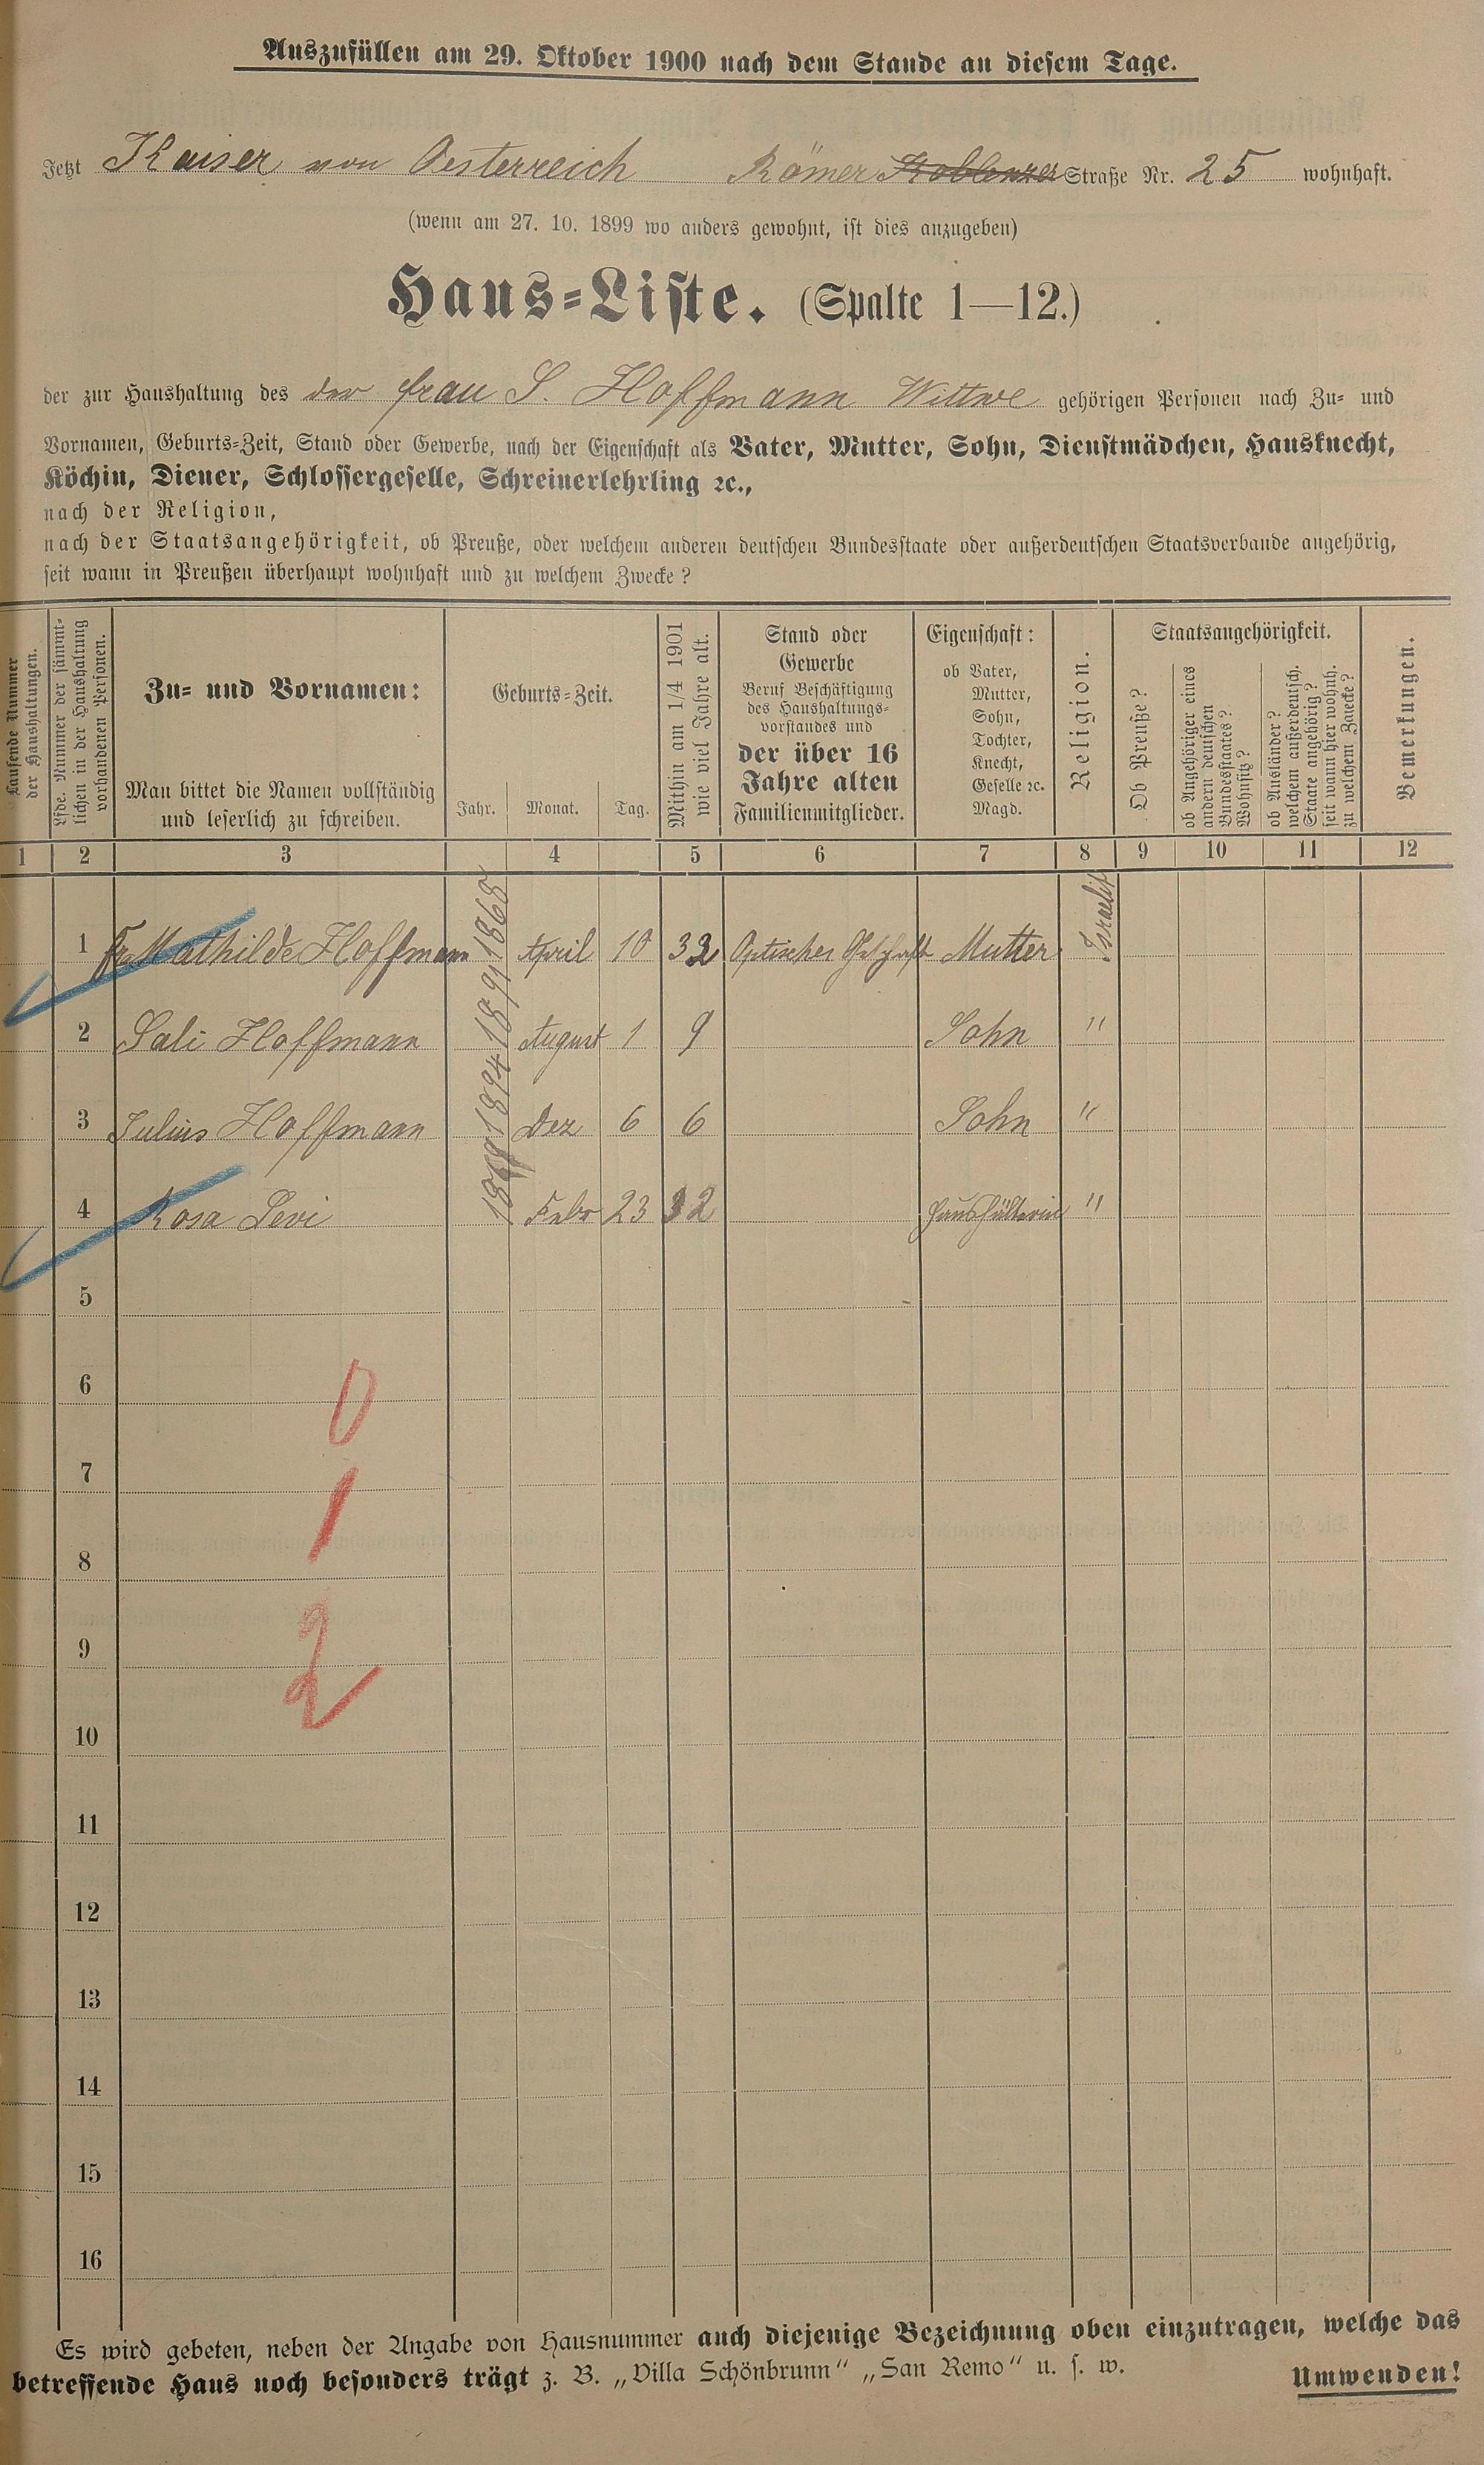 Auszufüllen am 29. Oktober 1900 nach dem Stande an diesem Tage.
Jetzt Kaiser von Oesterreich Römer Koblenzer Straße Nr. 25 wohnhaft.
(wenn am 27. 10. 1899 wo anders gewohnt, ist dies anzugeben)
Haus-Liste. (Spalte 1—12.)
der zur Haushaltung des der Frau S. Hoffmann Wittwe gehörigen Personen nach Zu- und
Vornamen, Geburts-Zeit, Stand oder Gewerbe, nach der Eigenschaft als Vater, Mutter, Sohn, Dienstmädchen, Hausknecht,
Köchin, Diener, Schlossergeselle, Schreinerlehrling ꝛc.,
nach der Religion,
nach der Staatsangehörigkeit, ob Preuße, oder welchem anderen deutschen Bundesstaate oder außerdeutschen Staatsverbande angehörig,
seit wann in Preußen überhaupt wohnhaft und zu welchem Zwecke?
Laufende Nummer
der Haushaltungen.
Lfde. Nummer der sämmt-
lichen in der Haushaltung
vorhandenen Personen.
Zu- und Vornamen:
Man bittet die Namen vollständig
und leserlich zu schreiben.
Geburts-Zeit.
Jahr. Monat. Tag.
Mithin am 1/4 1901
wie viel Jahre alt.
Stand oder
Gewerbe
Beruf Beschäftigung
des Haushaltungs-
vorstandes und
der über 16
Jahre alten
Familienmitglieder.
Eigenschaft:
ob Vater,
Mutter,
Sohn,
Tochter,
Knecht,
Geselle ꝛc.
Magd.
Religion.
Staatsangehörigkeit.
Ob Preuße?
ob Angehöriger eines
andern deutschen
Bundesstaates?
Wohnsitz?
ob Ausländer?
welchem außerdeutsch.
Staate angehörig?
seit wann hier wohnh.
zu welchem Zwecke?
Bemerkungen.
1 2 3 4 5 6 7 8 9 10 11 12
1 Fr Mathilde Hoffmann 1868 April 10 32 Optisches Geschäft Mutter Israelit
2 Sali Hoffmann 1891 August 1 9 Sohn "
3 Julius Hoffmann 1894 Dez 6 6 Sohn "
4 Rosa Levi 1868 Febr 23 32 Haushälterin "
5
6
0
7
1
8
9
2
10
11
12
13
14
15
16
Es wird gebeten, neben der Angabe von Hausnummer auch diejenige Bezeichnung oben einzutragen, welche das
betreffende Haus noch besonders trägt z. B. „Villa Schönbrunn“ „San Remo“ u. s. w.
Umwenden!